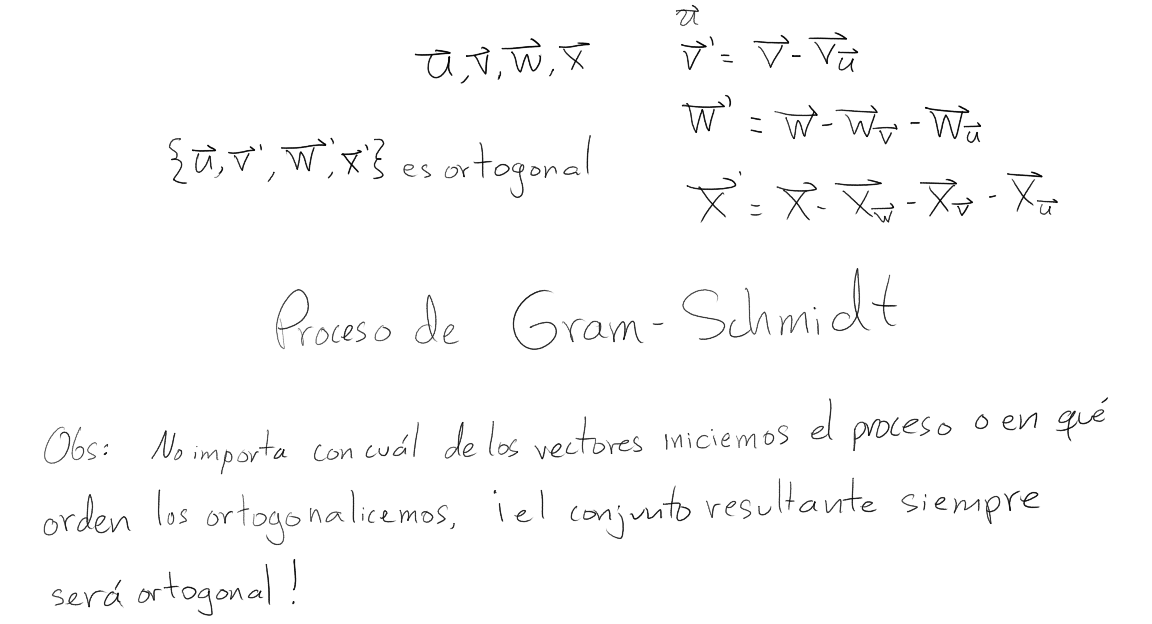 u⃗
u⃗, v⃗, w⃗, x⃗
v⃗' = v⃗ - v⃗_u⃗
w⃗' = w⃗ - w⃗_v⃗ - w⃗_u⃗
{u⃗, v⃗', w⃗', x⃗'} es ortogonal
x⃗' = x⃗ - x⃗_w⃗ - x⃗_v⃗ - x⃗_u⃗
Proceso de Gram-Schmidt
Obs: No importa con cuál de los vectores iniciemos el proceso o en qué
orden los ortogonalicemos, ¡el conjunto resultante siempre
será ortogonal!